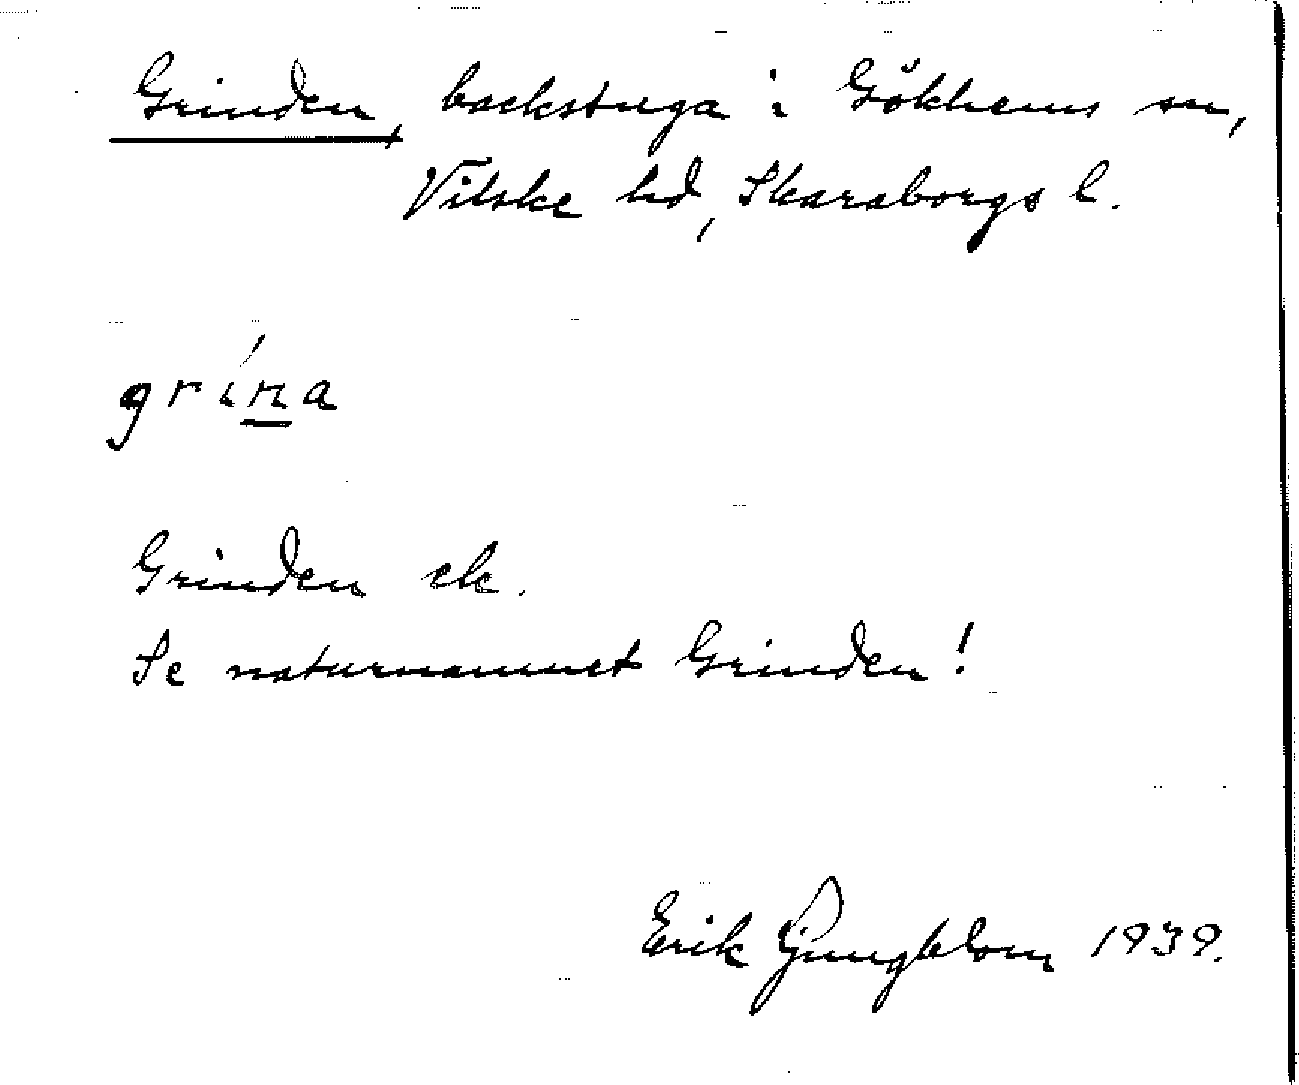 Grinden, backstuga i Gökhems sn,
Vilske hd, Skaraborgs l.
grína
Grinden ek.
Se naturnamnet Grinden!
Erik Ljungblom 1939.